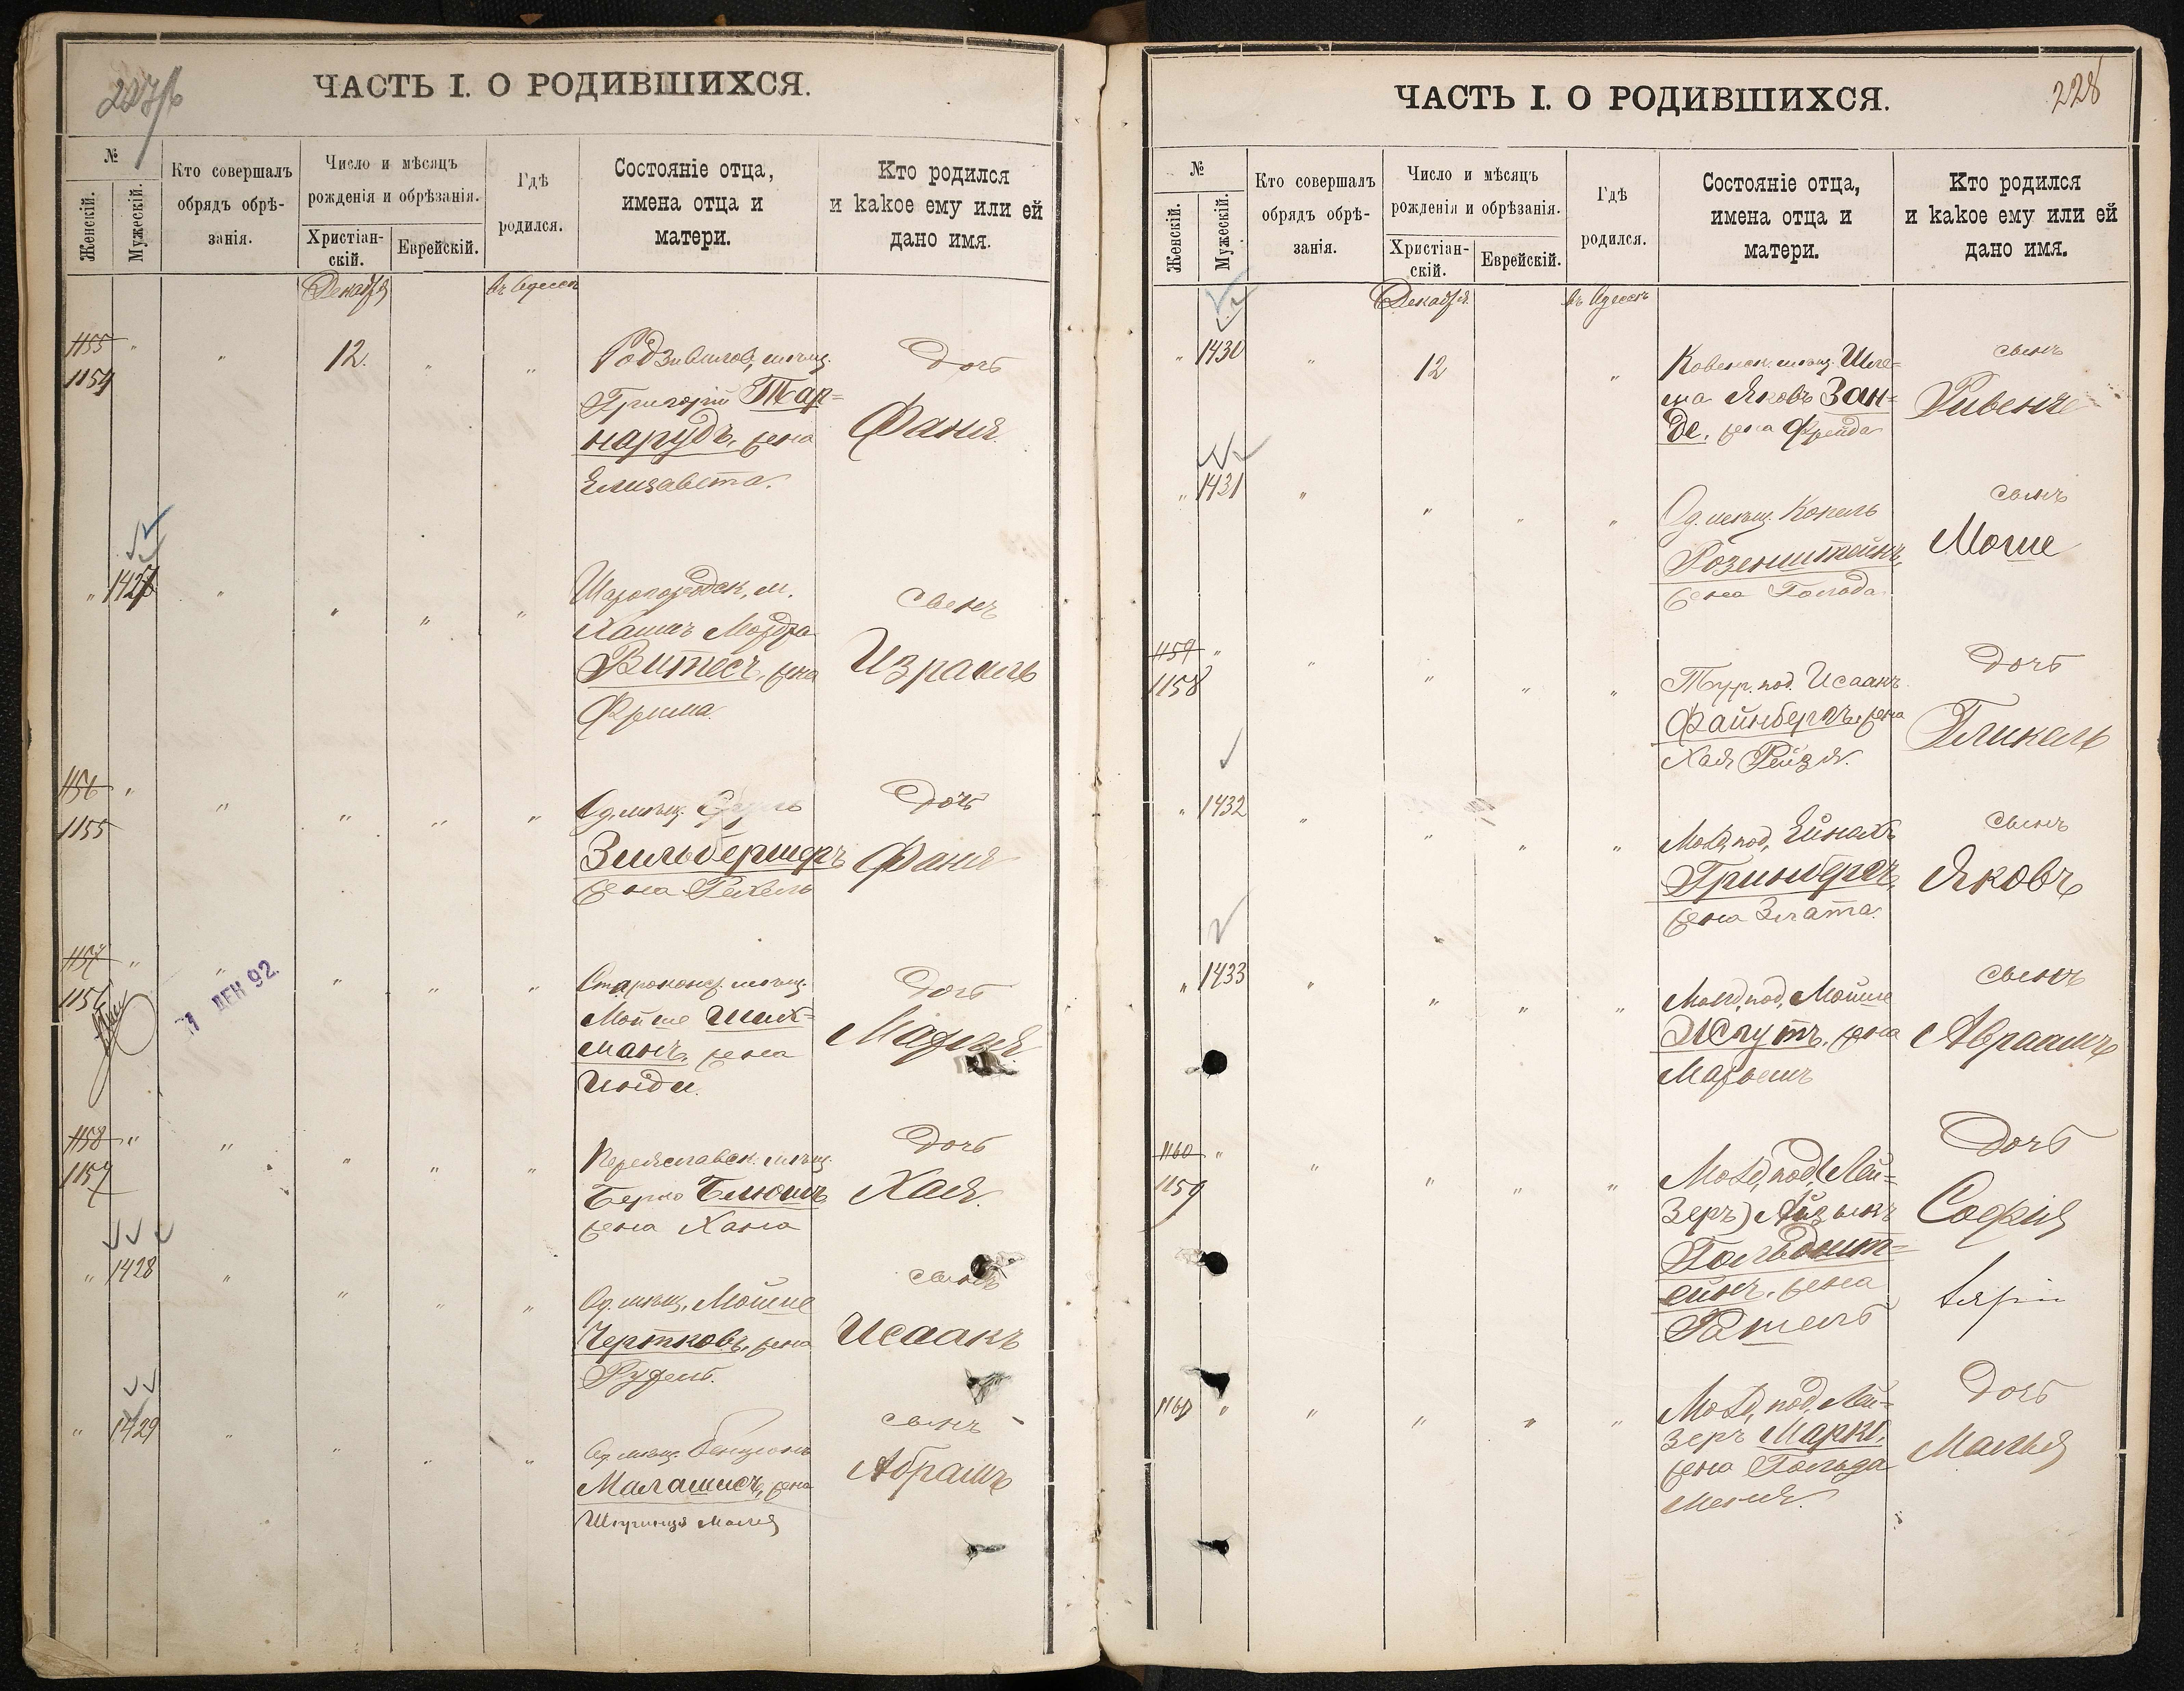 ЧАСТЬ I. О РОДИВШИХСЯ.
№
Женскій.
Мужескій.
Кто совершалъ
обрядъ обрѣ-
занія.
Число и мѣсяцъ
рожденія и обрѣзанія.
Христіан-
скій.
Еврейскій.
Гдѣ
родился.
Состояніе отца,
имена отца и
матери.
Кто родился
и какое ему или ей
дано имя.
Декабря
въ Одессѣ
1155
1154
12.
Родзивилов, мѣщ.
Григорій Тар=
нарудъ, жена
Елизавета.
Дочь
Фаня.
1427
Шарогородск. м.
Хаимъ Мордко
Витесъ, жена
Фрима.
сынъ
Израиль
1156
1155
Од. мѣщ.
Зильбершеръ
жена Рехель
Дочь
Фаня
1157
1156
ДЕК 92.
Староконс. мѣщ.
Мойше Ших=
манъ, жена
Инди.
Дочь
Марья
1158
1157
Переяславск. мѣщ.
Берко Блюмъ
жена Хана
Дочь
Хая.
1428
Од. мѣщ. Мойше
Чертковъ, жена
Рухель.
сынъ
Исаакъ
1429
Од. мѣщ. Бенціонъ
Малашисъ, жена
Шпринца Малка
сынъ
Абрамъ
ЧАСТЬ I. О РОДИВШИХСЯ.
228
№
Женскій.
Мужескій.
Кто совершалъ
обрядъ обрѣ-
занія.
Число и мѣсяцъ
рожденія и обрѣзанія.
Христіан-
скій.
Еврейскій.
Гдѣ
родился.
Состояніе отца,
имена отца и
матери.
Кто родился
и какое ему или ей
дано имя.
Декабря
въ Одессѣ
1430
12
Ковенск. мѣщ. Шле=
ма Яковъ Зан=
де, жена Фрейда
сынъ
Рувенъ
1431
Од. мѣщ. Копель
Розенштейнъ,
жена Гольда
сынъ
Моше
1159
1158
Тур. под. Исаакъ
Файнбергъ, жена
Хая Рейзя.
Дочь
Гликель
1432
Молд. под. Ейнахъ
Гринбергъ,
жена Злата.
сынъ
Яковъ
1433
Молд. под. Мойше
жена
Марьемъ
сынъ
Авраамъ
1160
1159
Молд. под. (Лей=
зеръ) Айзикъ
Гольдшт=
ейнъ, жена
Рашель
Дочь
Софія
1160
Молд. под. Лей=
зеръ Маркъ,
жена Гольда
Меня.
Дочь
Малья